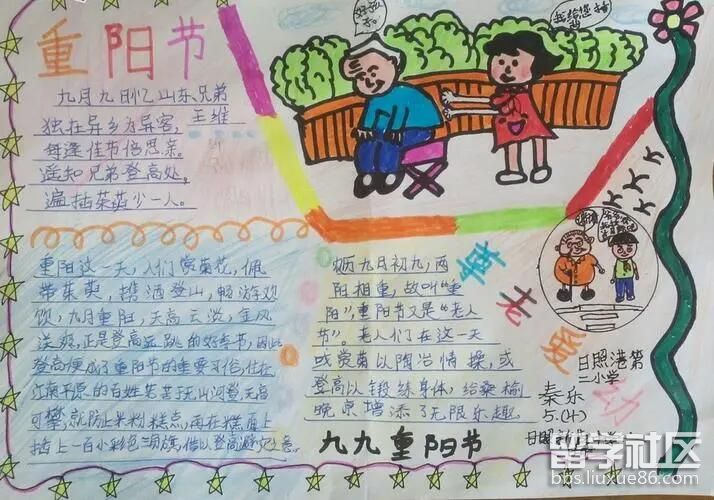 重阳节
九月九日忆山东兄弟
王维
独在异乡为异客,
每逢佳节倍思亲。
遥知兄弟登高处,
遍插茱萸少一人。
我给您捶
重阳这一天,人们赏菊花,佩
带茱萸,携酒登山,畅游欢
饮,九月重阳,天高云淡,金风
送爽,正是登高远眺的好季节,因此
登高便成了重阳节的重要习俗,住在
江南平原的百姓苦于无山河登,无高
可攀,就仿米粉糕点,再在糕面上
插上一面小彩色三角旗,借以登高避
九月初九,两
阳相重,故叫“重
阳”重阳节又是“老人
节”。老人们在这一天
或赏菊以陶冶情操,或
登高以锻练身体,给桑榆
晚景增添了无限乐趣
九九重阳节
尊老爱幼
日照港第
二小学
秦乐
五.(十)
留学社区
bbs.liuxue86.com